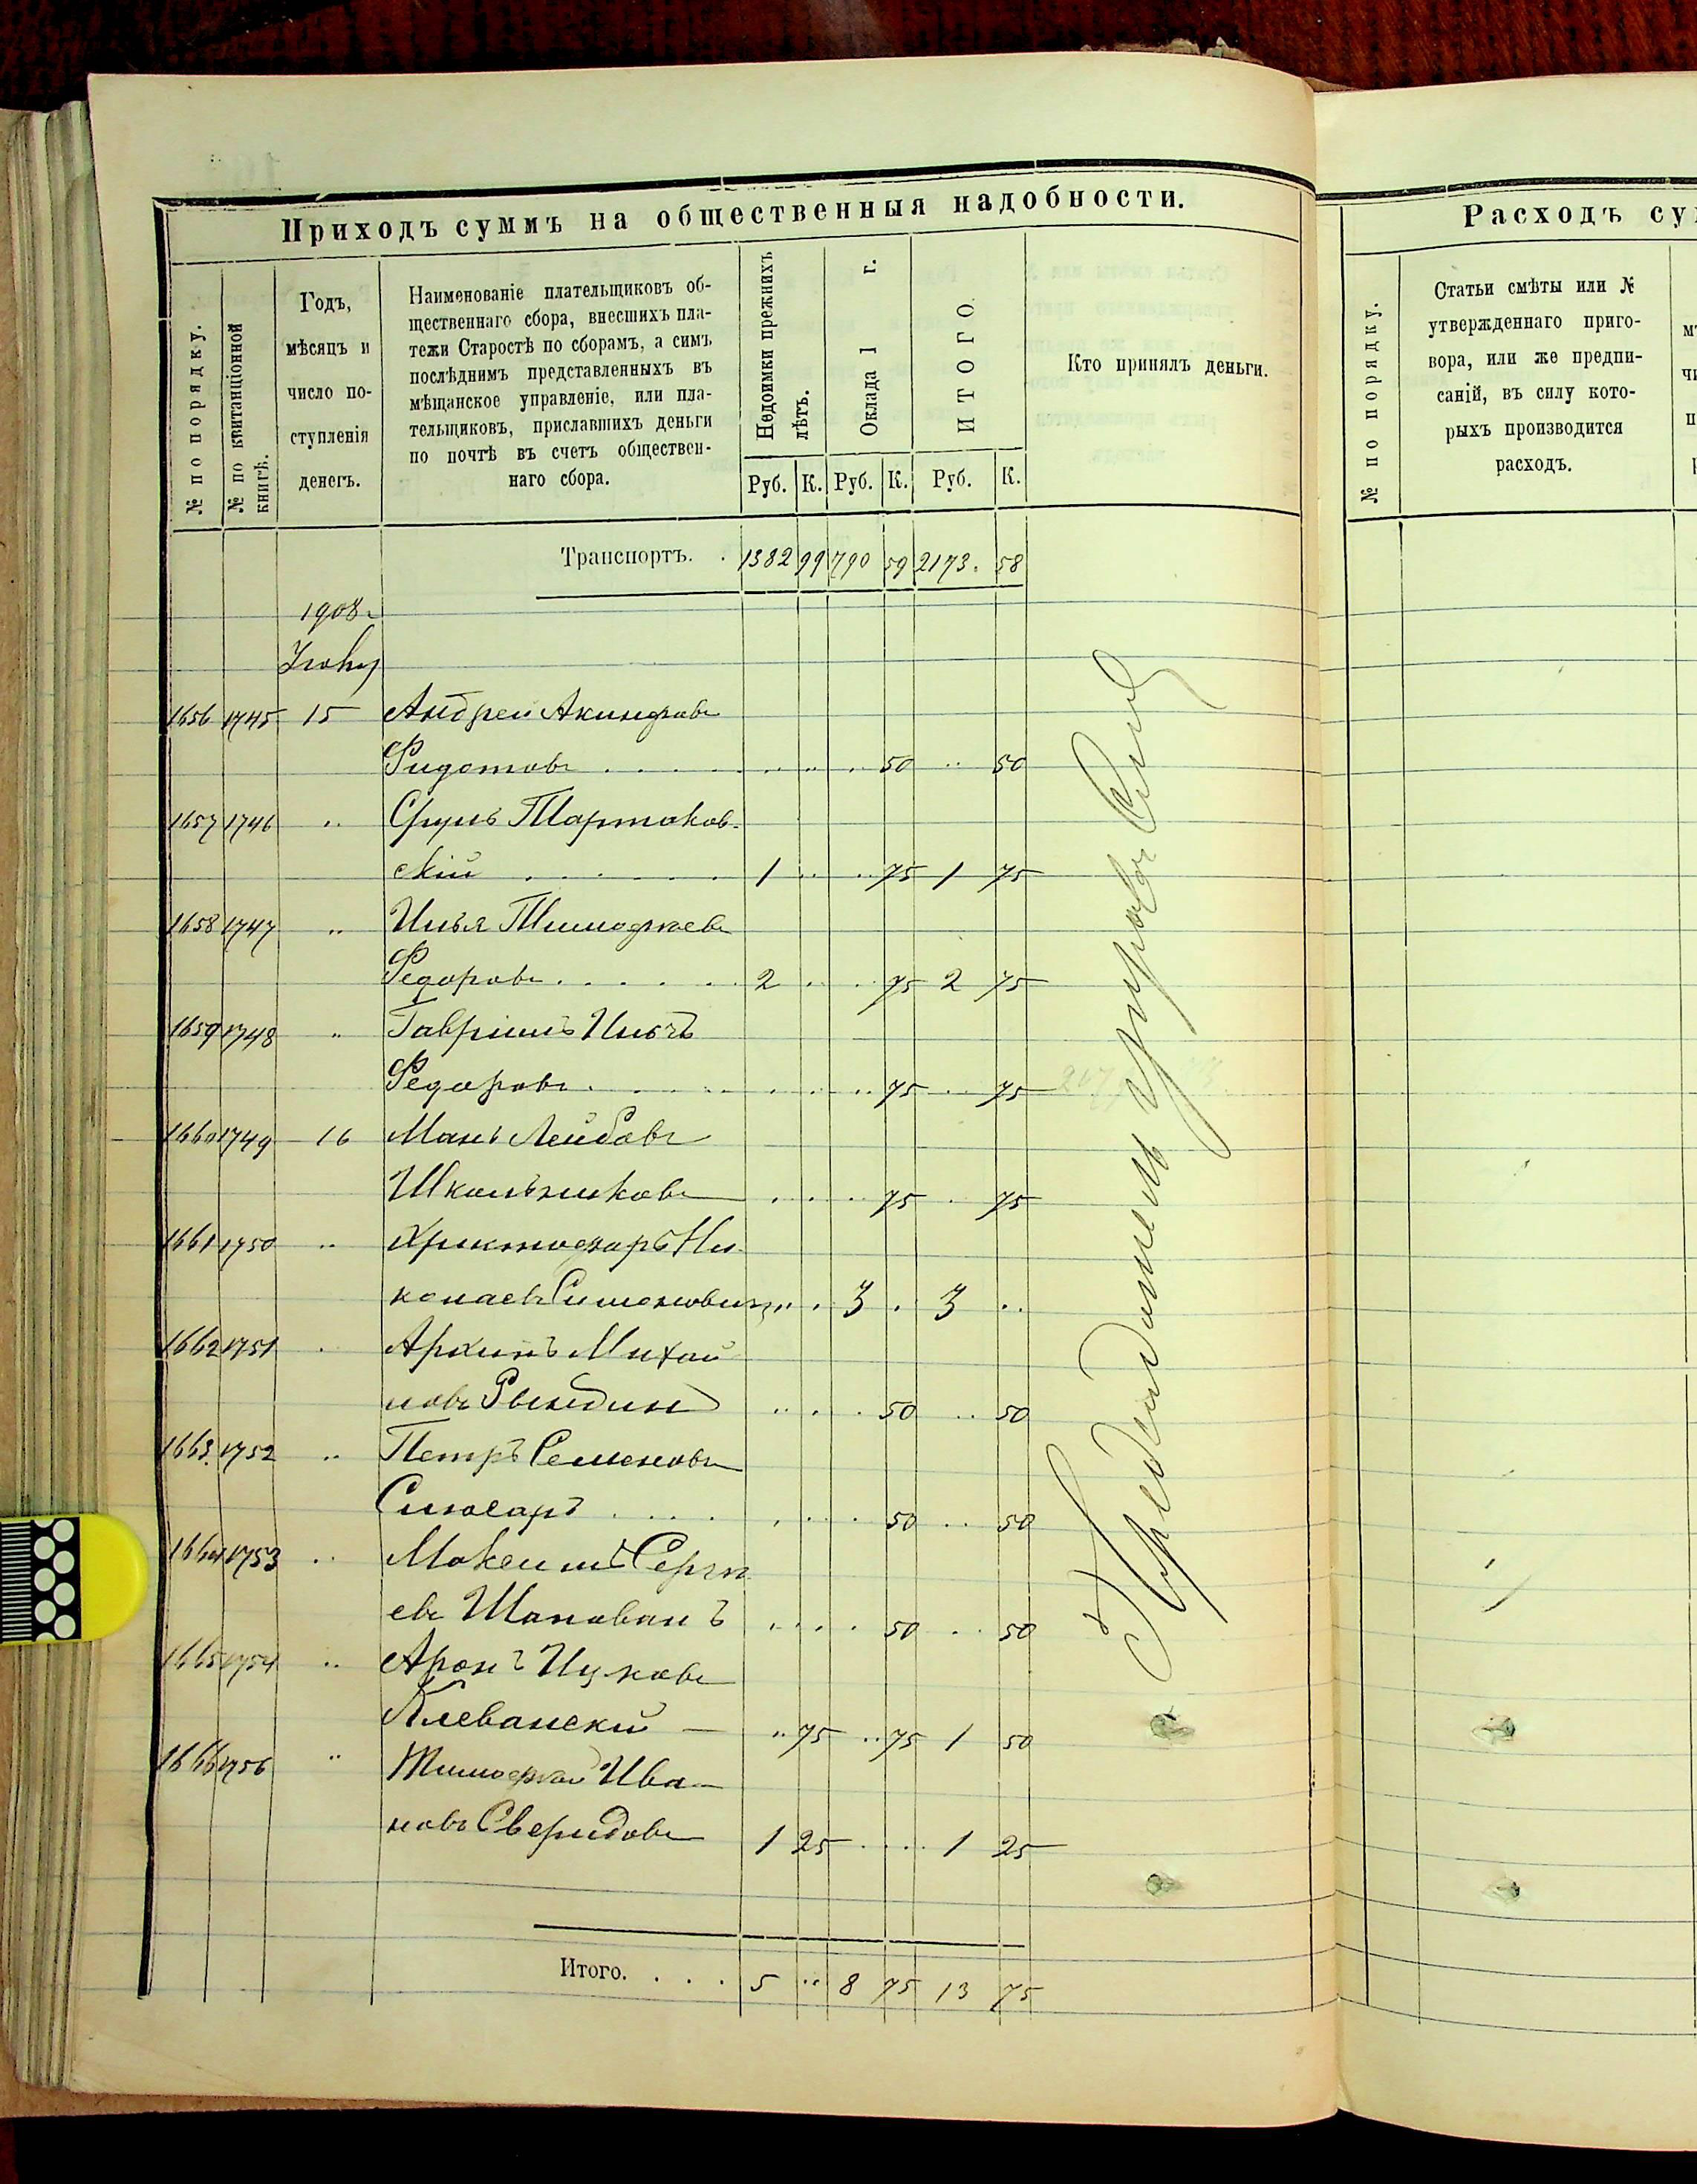 Приходъ суммъ на общественныя надобности.
№ по порядку.
№ по квитанціонной
книгѣ.
Годъ,
мѣсяцъ и
число по-
ступленія
денегъ.
Наименованіе плательщиковъ об-
щественнаго сбора, внесшихъ пла-
тежи Старостѣ по сборамъ, а симъ
послѣднимъ представленныхъ въ
мѣщанское управленіе, или пла-
тельщиковъ, приславшихъ деньги
по почтѣ въ счетъ обществен-
наго сбора.
Недоимки прежнихъ
лѣтъ.
Оклада 1 г.
ИТОГО
Кто принялъ деньги.
Руб. К. Руб. К. Руб. К.
Транспортъ. . 1382 99 790 59 2173. 58
1908 г.
1656 1745 15 Андрей Акинфовъ
Федотовъ . . . . 50 .. 50
1657 1746 .. Сруль Тартаков-
скій . . . . . . 1 .. .. 75 1 75
1658 1747 .. Илья Тимофеевъ
Федоровъ . . . . . . 2 .. .. 75 2 75
1659 1748 .. Гавріилъ Ильичъ
Федоровъ . . . . 75 .. 75
1660 1749 16 Мань Лейбовъ
Школьниковъ . . . . 75 . 75
1661 1750 .. Христофоръ Ни-
колаевъ Симоновичъ .. . 3 . 3 ..
1662 1751 . Архипъ Михай
ловъ Рындинъ .. . . 50 .. 50
1663. 1752 .. Петръ Семеновъ
Слюсаръ . . . . 50 .. 50
1664 1753 .. Максимъ Серге
евъ Шаповалъ . . . . 50 .. 50
1665 1754 .. Аронъ Ицковъ
Клеванскій — .. 75 .. 75 1 50
1666 1756 .. Тимофей Ива-
новъ Свиридовъ 1 25 . . . . 1 25
Итого. . . . 5 .. 8 75 13 75
Расходъ су
№ по порядку.
Статьи смѣты или №
утвержденнаго приго-
вора, или же предпи-
саній, въ силу кото-
рыхъ производится
расходъ.